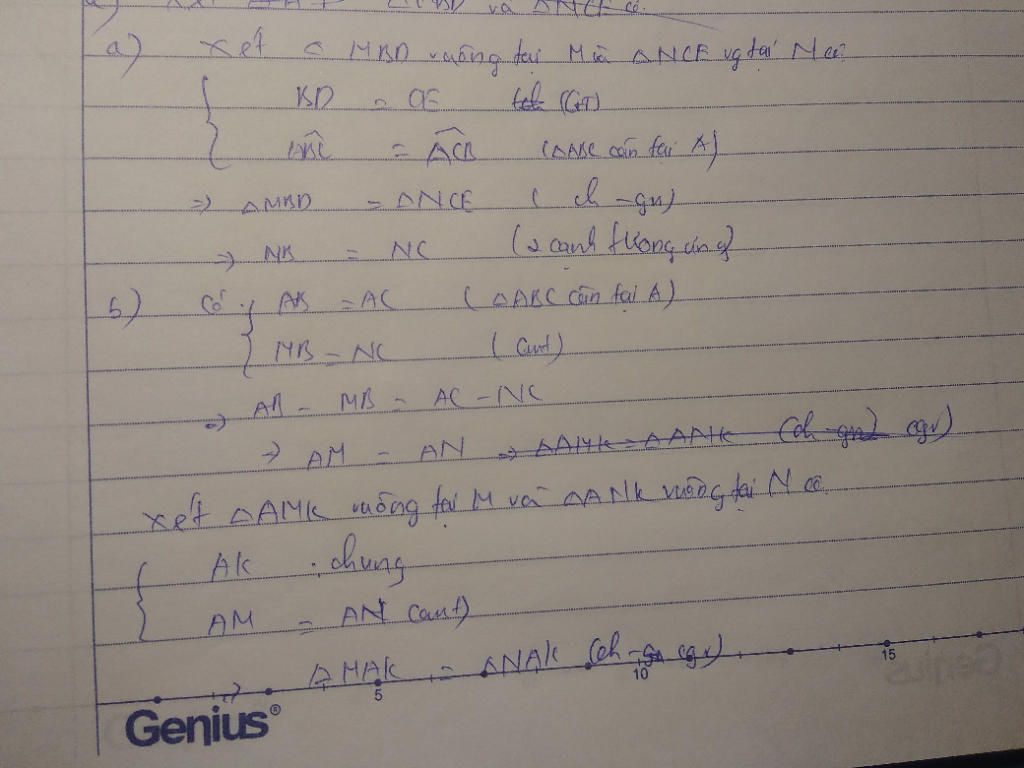 a) Xét △ MBD vuông tại M và △NCE vg tại N có
BD = CE (GT)
ABC = ACB (△ABC cân tại A)
=> △MBD = △NCE ( ch - gn)
=> MB = NC (2 cạnh tương ứng)
b) Có AB = AC ( △ABC cân tại A)
MB = NC ( cmt)
=> AB - MB = AC - NC
=> AM = AN => △AMK = △ANK (ch - gn) cgv)
Xét △AMK vuông tại M và △ANK vuông tại N có
AK : chung
AM = AN (cmt)
=> △MAK = △NAK (ch - cgv)
5 10 15
Genius®